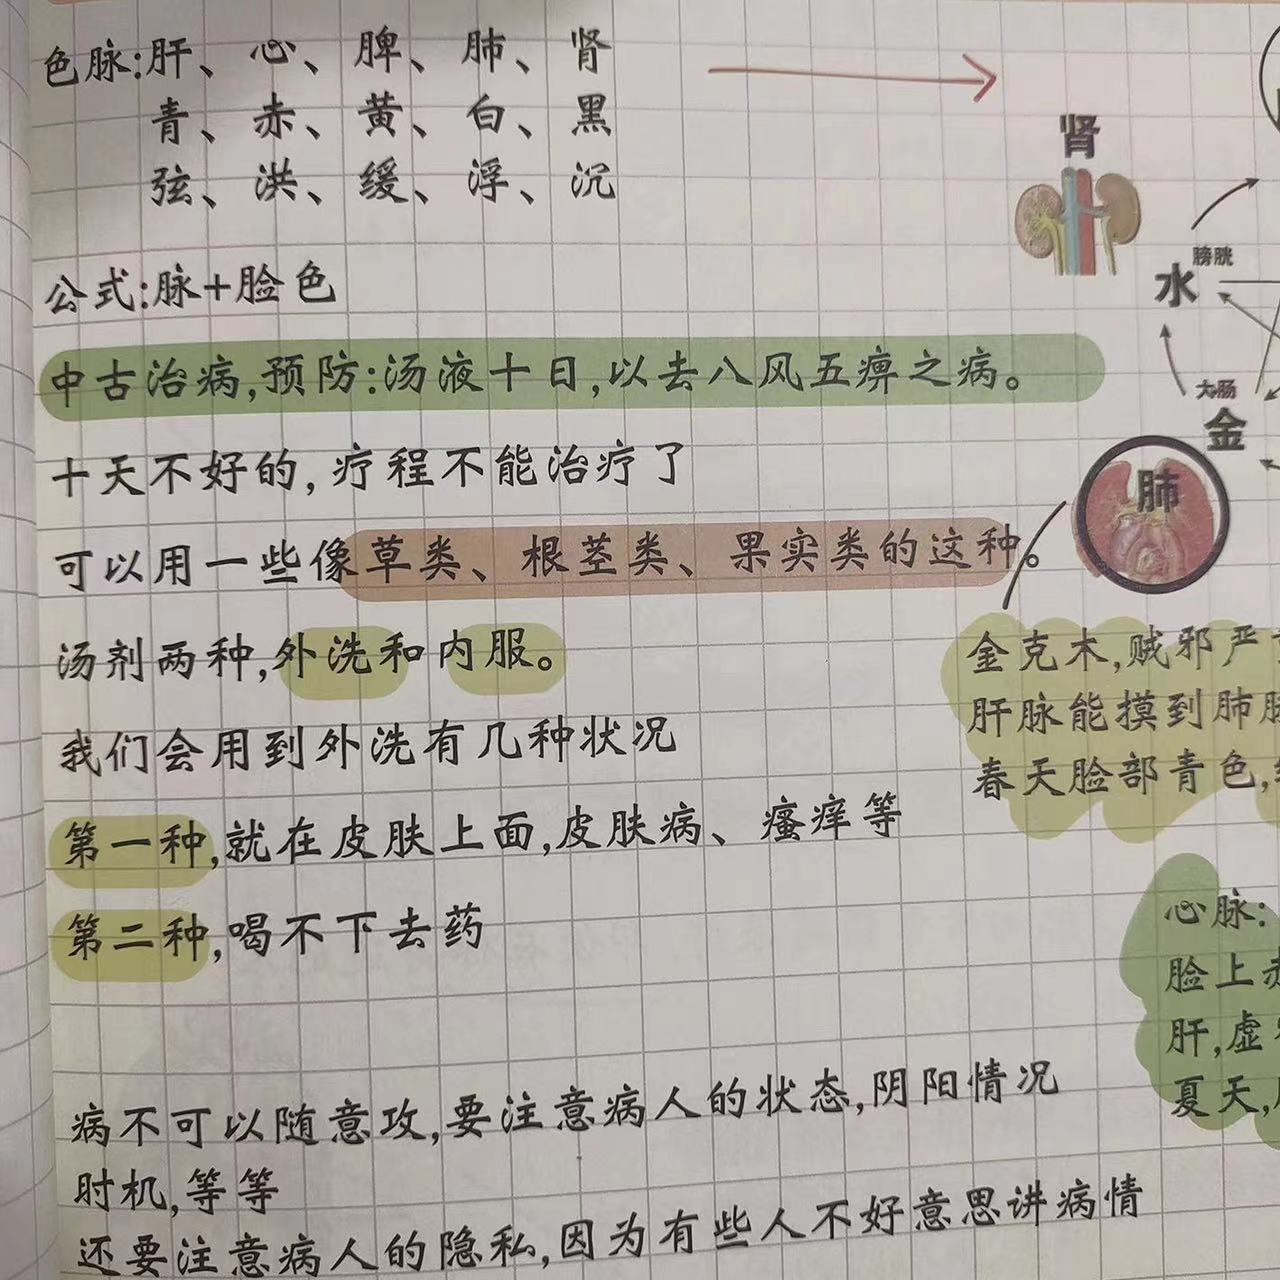 色脉:肝、心、脾、肺、肾
青、赤、黄、白、黑
弦、洪、缓、浮、沉
公式:脉+脸色
中古治病,预防:汤液十日,以去八风五痹之病。
十天不好的,疗程不能治疗了
可以用一些像草类、根茎类、果实类的这种。
汤剂两种,外洗和内服。
我们会用到外洗有几种状况
第一种,就在皮肤上面,皮肤病、瘙痒等
第二种,喝不下去药
病不可以随意攻,要注意病人的状态,阴阳情况
时机,等等
还要注意病人的隐私,因为有些人不好意思讲病情
肾
膀胱
水
大肠
金
肺
金克木,贼邪严
肝脉能摸到肺
春天脸部青色,
心脉:
脸上
肝,虚
夏天,